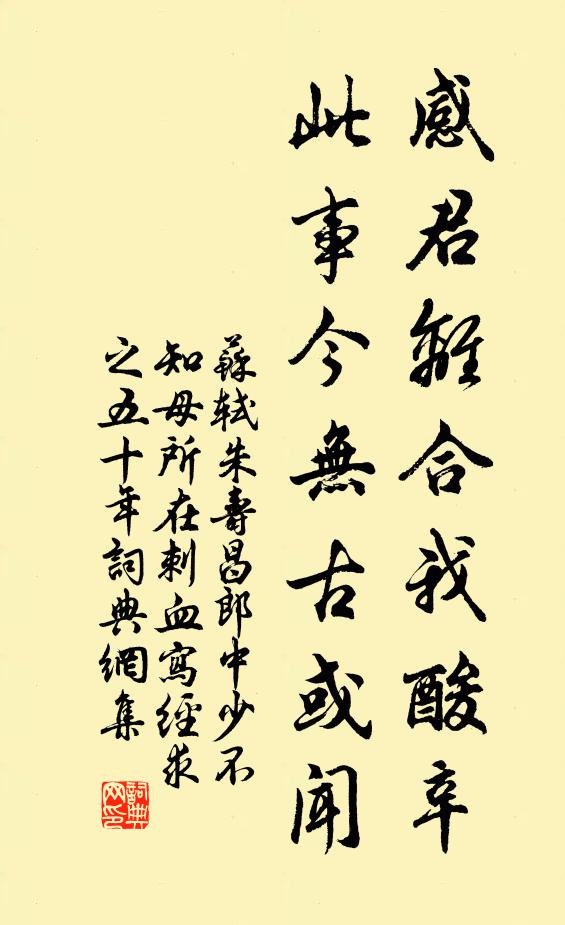 感君離合我酸辛
此事今無古或聞
蘇軾朱壽昌郎中少不
知母所在刺血寫經求
之五十年詞典網集
詞典網印